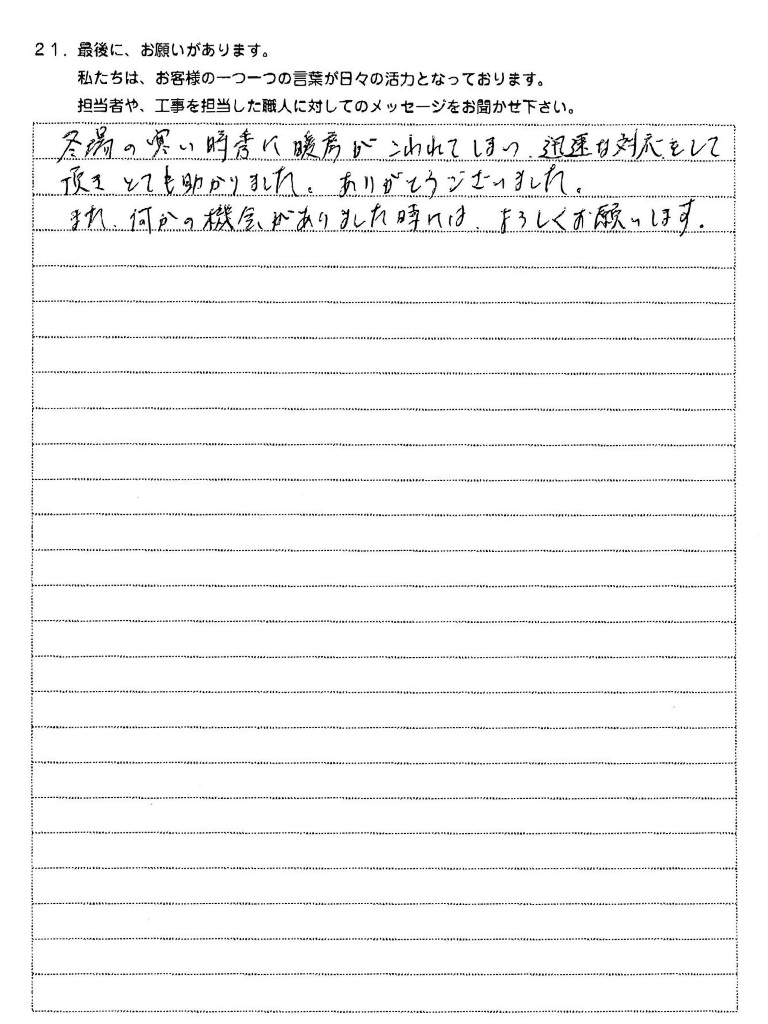 21. 最後に、お願いがあります。
私たちは、お客様の一つ一つの言葉が日々の活力となっております。
担当者や、工事を担当した職人に対してのメッセージをお聞かせ下さい。
冬場の寒い時季に暖房がこわれてしまい、迅速な対応をして
頂きとても助かりました。ありがとうございました。
また、何かの機会がありました時には、よろしくお願いします。